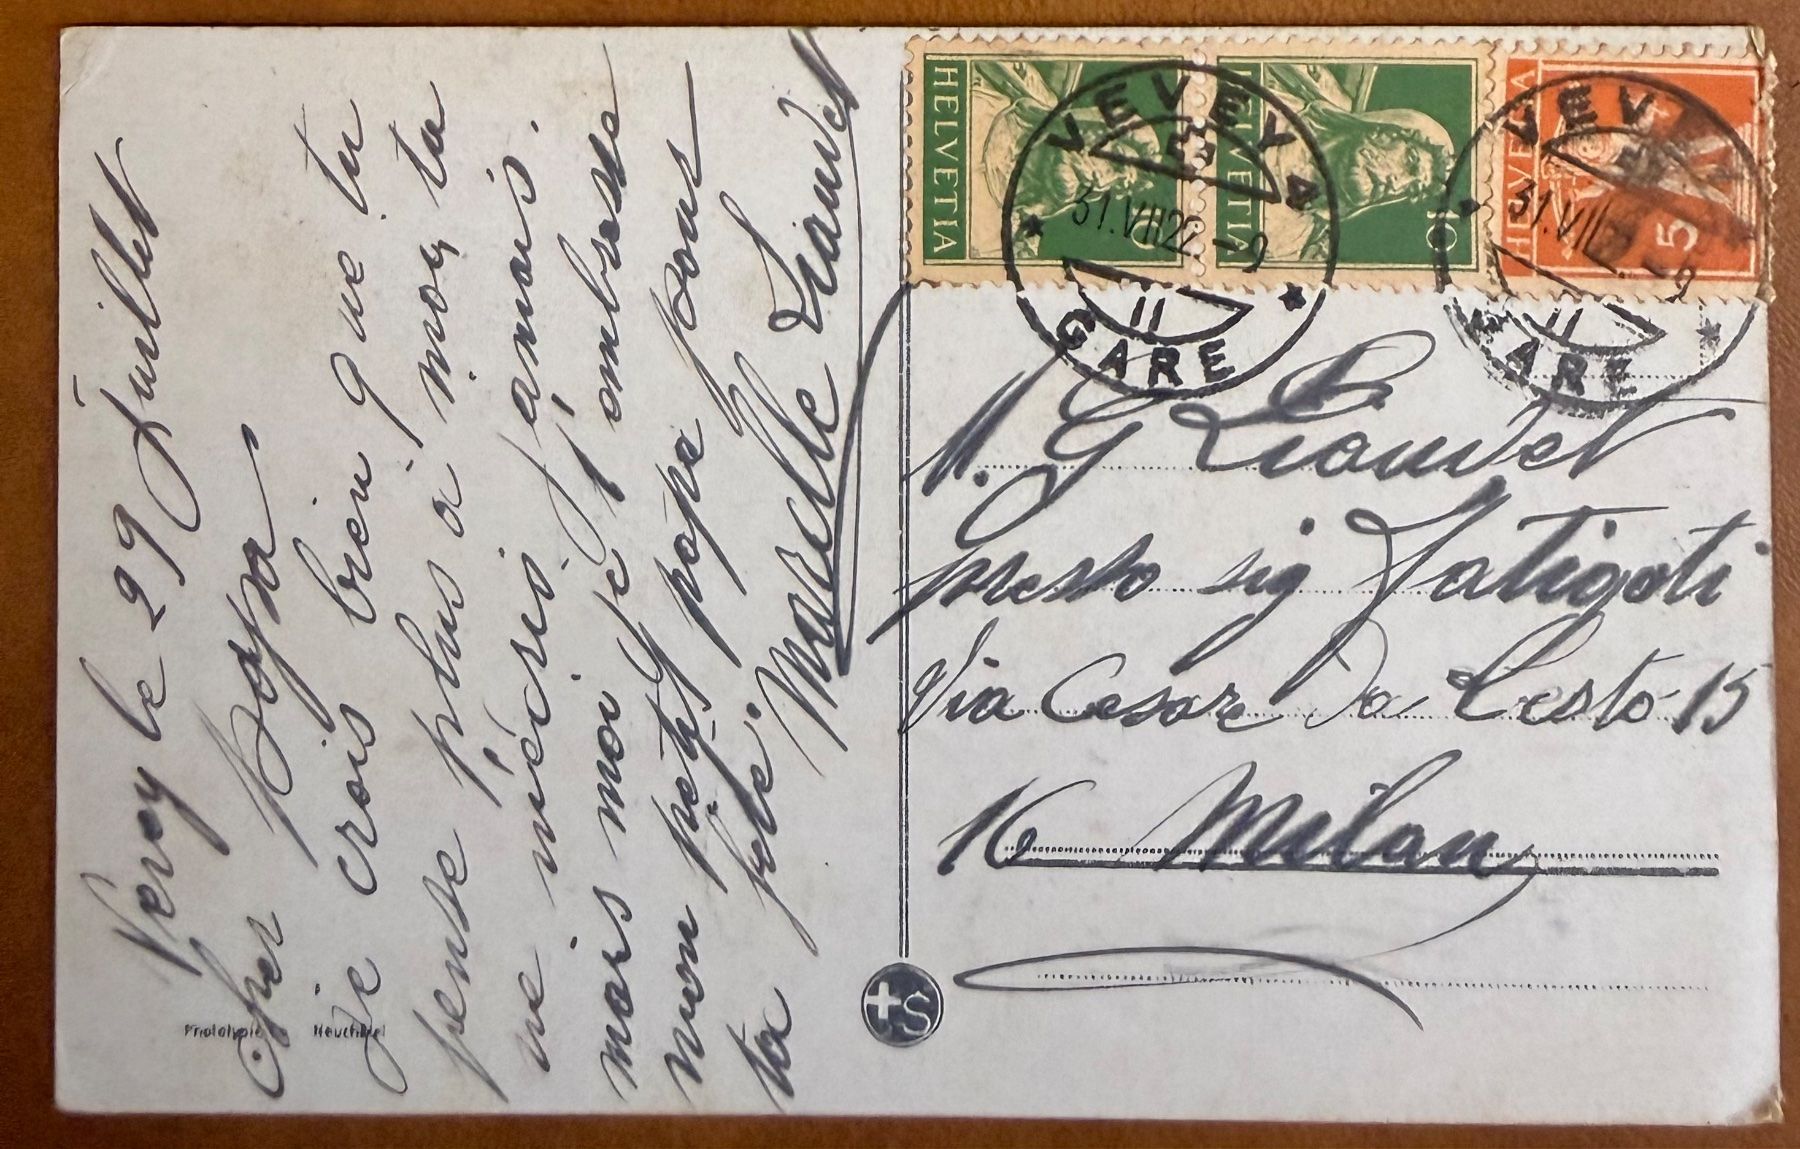 le 29 Juillet
Cher Papa
Je crois bien que tu
pense plus a moi, tu
ne m'écris jamais.
mais moi je t'embrasse
mon petit papa pour
ta fête.
Marcelle Liaudet
Phototypie Neuchâtel
+S
HELVETIA
10
HELVETIA
10
HELVETIA
5
VEVEY
31.VII 22.-9
II
GARE
VEVEY
31.VII
II
GARE
M. G Liaudet
presso sig Fatigati
Via Cesare Da Cesto 15
16 Milan